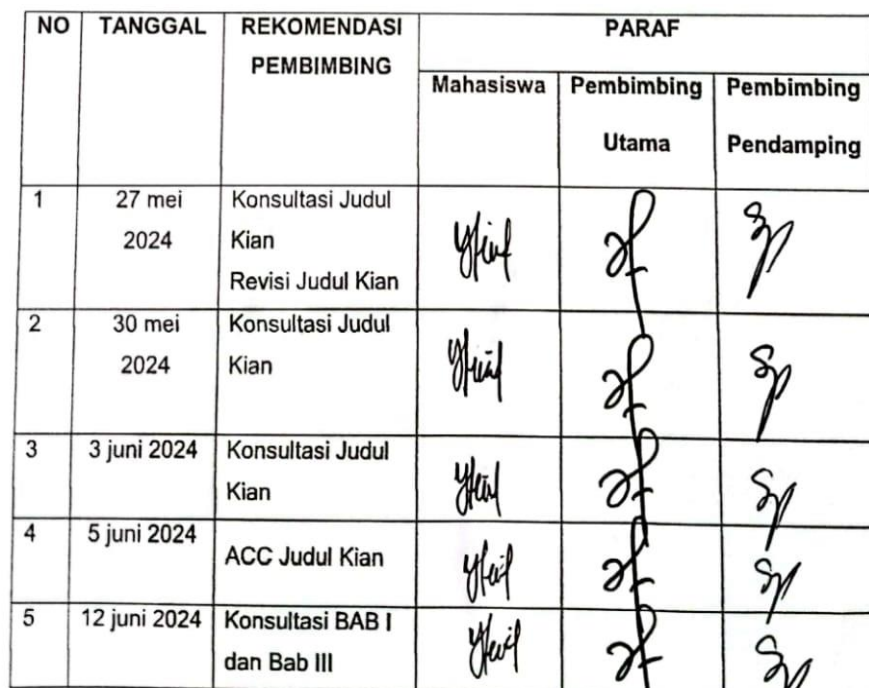 NO TANGGAL REKOMENDASI PEMBIMBING PARAF
Mahasiswa Pembimbing Utama Pembimbing Pendamping
1 27 mei 2024 Konsultasi Judul Kian
Revisi Judul Kian
2 30 mei 2024 Konsultasi Judul Kian
3 3 juni 2024 Konsultasi Judul Kian
4 5 juni 2024 ACC Judul Kian
5 12 juni 2024 Konsultasi BAB I dan Bab III